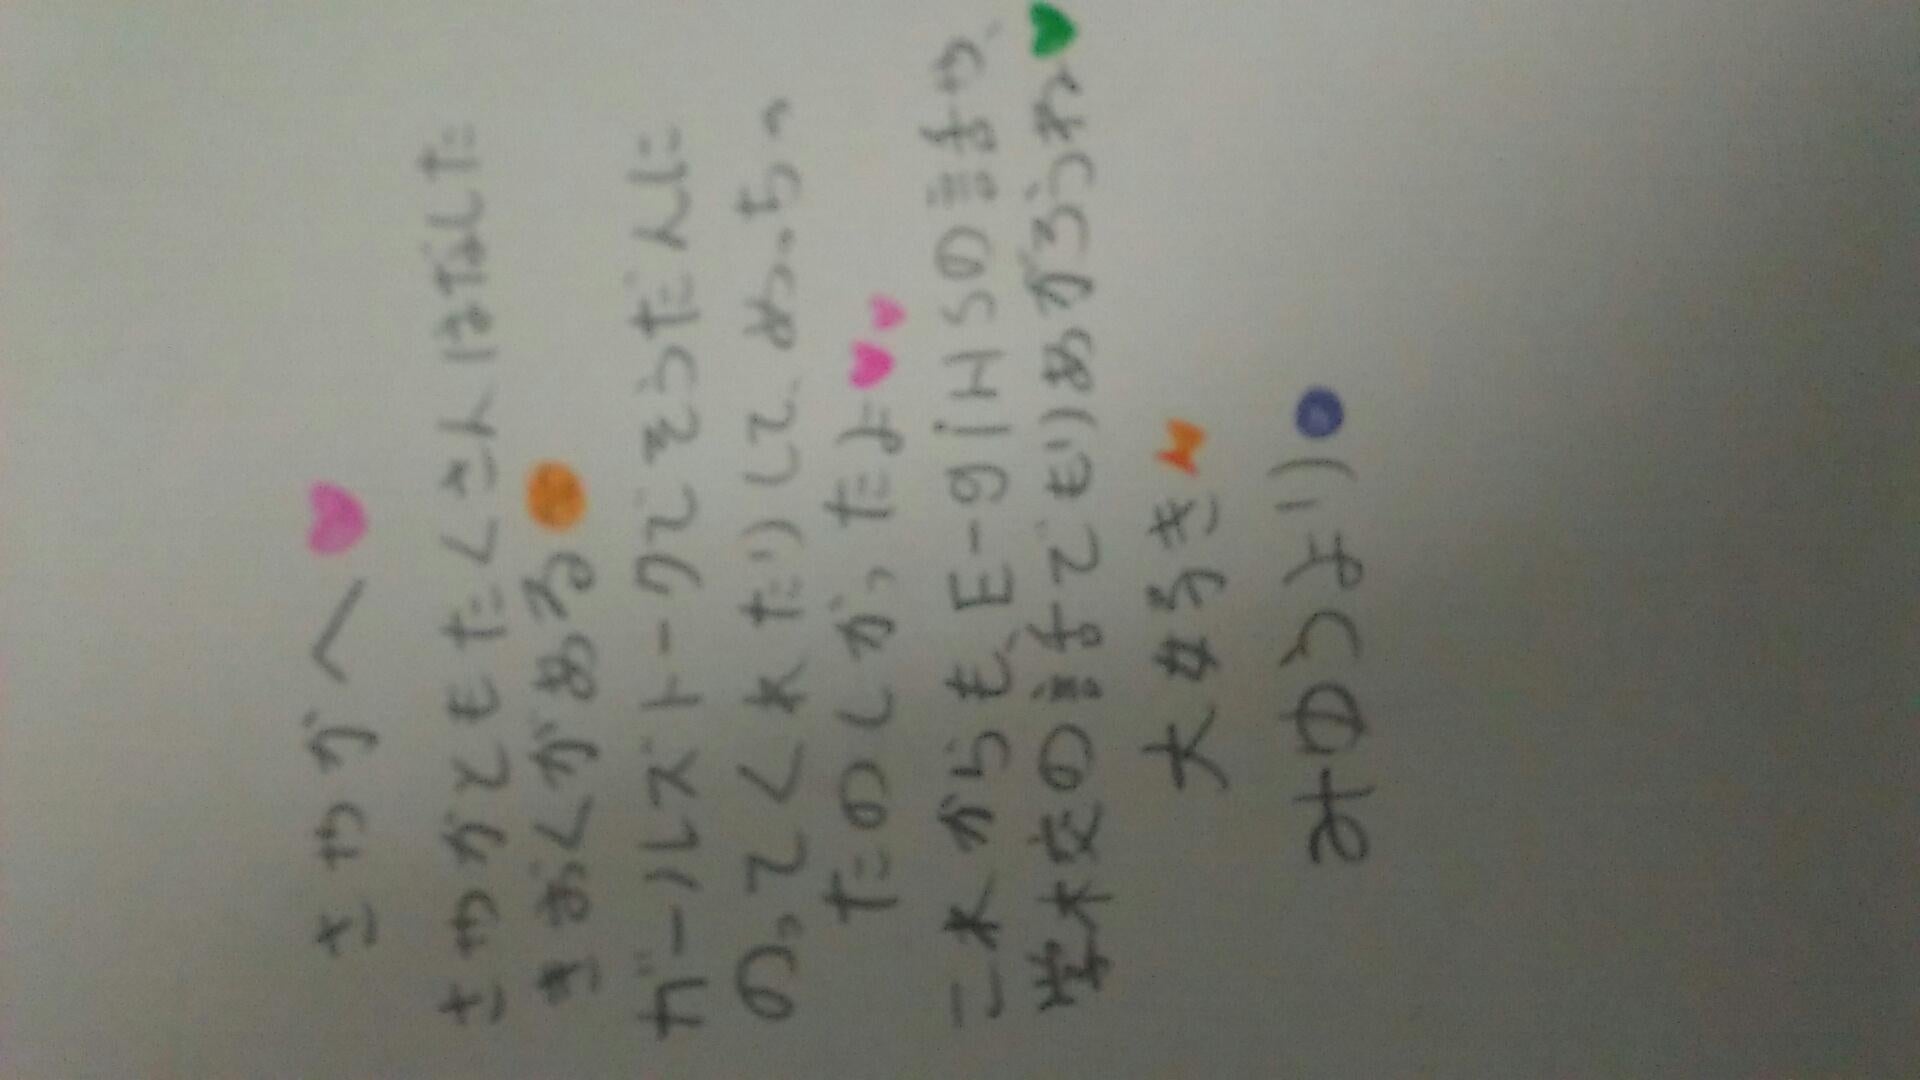 さやがへ
さやがともたくさんはなした
きおくがある
ガールズトークでそうだんに
のってくれたりして、めっちゃ
たのしかったよ
これからも、E-girlsの話や、
学校の話でもりあがろうね
大好き
みゆうより